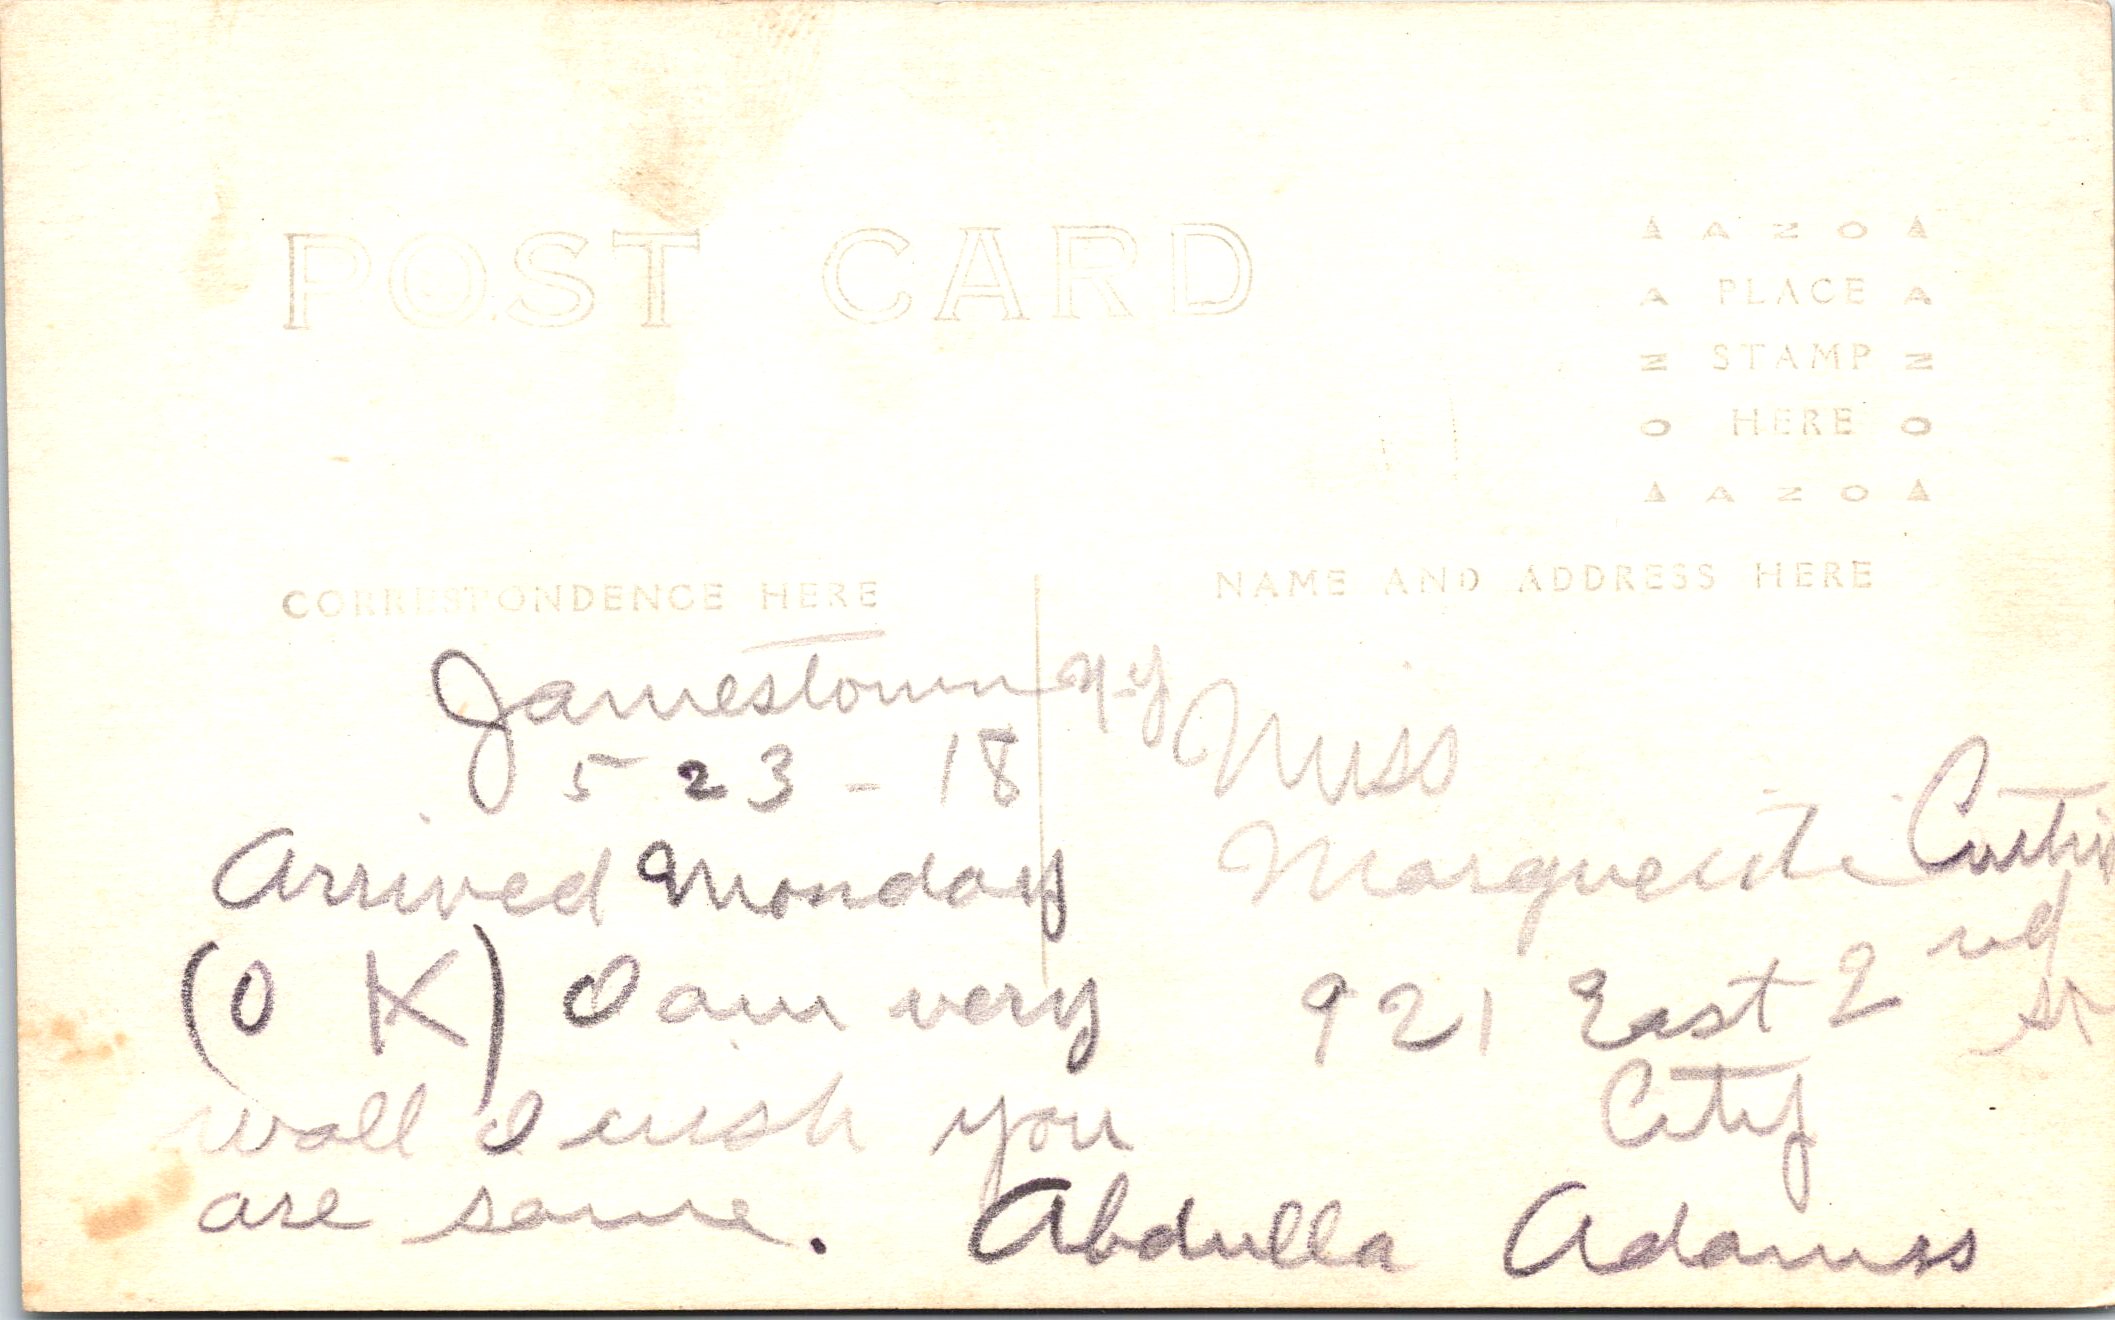 POST CARD
▲ AZO ▲
A PLACE A
Z STAMP Z
O HERE O
▲ AZO ▲
CORRESPONDENCE HERE
NAME AND ADDRESS HERE
Jamestown N-Y
5 23 - 18
Arrived Monday
(O K) I am very
wall I wish you
are same.
Miss
Marguerite
921 East 2nd
St
City
Abdulla Adamss